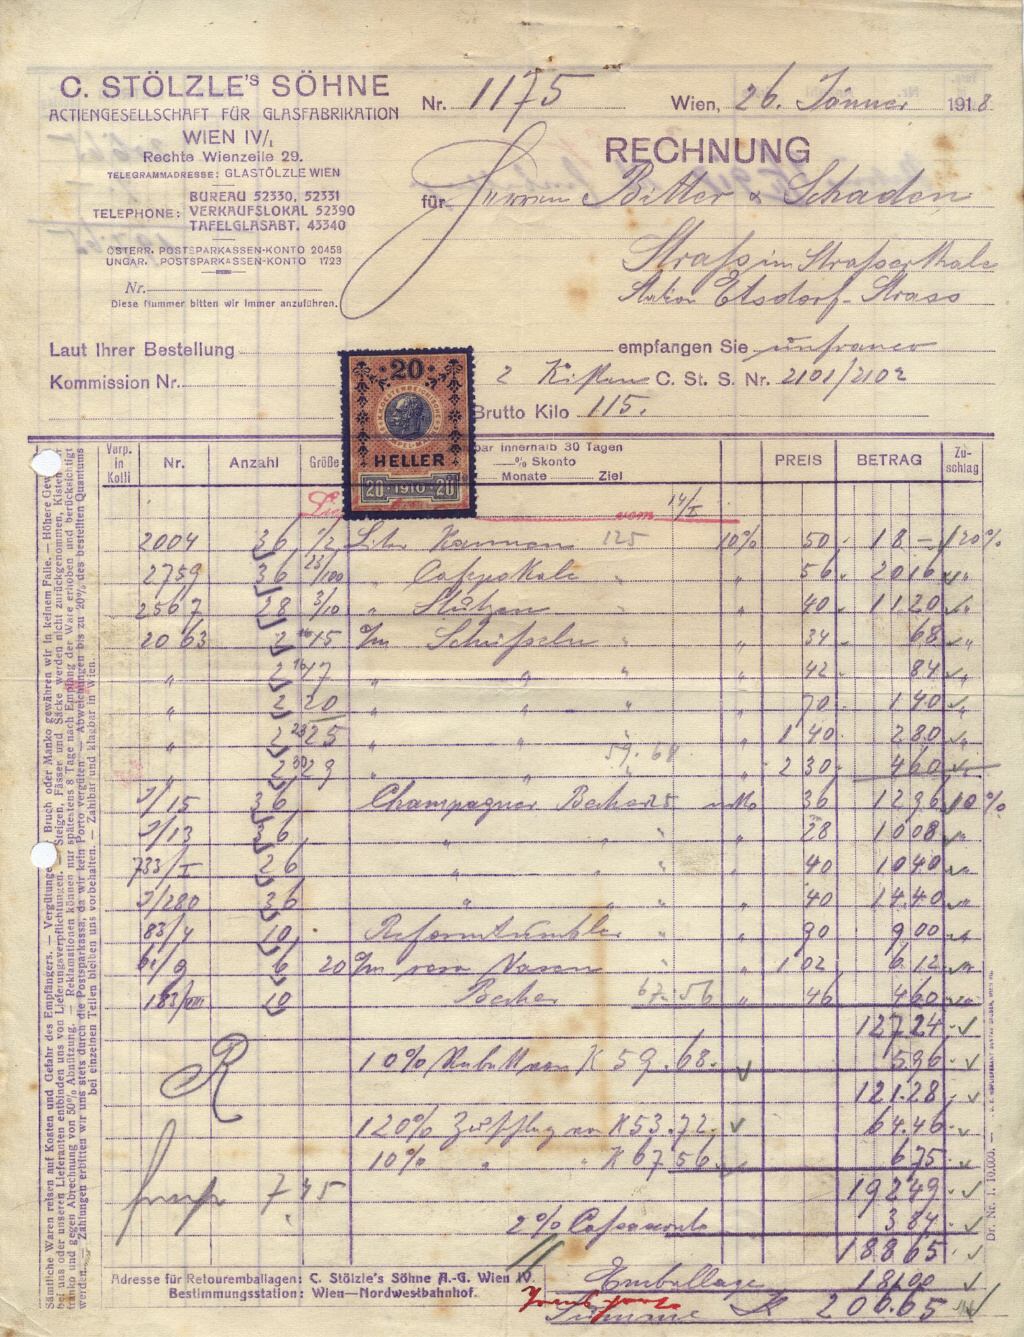 C. STÖLZLE'S SÖHNE
ACTIENGESELLSCHAFT FÜR GLASFABRIKATION
WIEN IV/1
Rechte Wienzeile 29.
TELEGRAMMADRESSE: GLASTÖLZLE WIEN
TELEPHONE: BUREAU 52330, 52331
VERKAUFSLOKAL 52390
TAFELGLASABT. 43340
ÖSTERR. POSTSPARKASSEN-KONTO 20458
UNGAR. POSTSPARKASSEN-KONTO 1723
Nr.
Diese Nummer bitten wir immer anzuführen.
Nr. 1175 Wien, 26. Jänner 1918.
RECHNUNG
für Herren Bitter & Schaden
Strass im Strasserthale
Station Etsdorf-Strass
Laut Ihrer Bestellung empfangen Sie unfranco
Kommission Nr. 2 Kisten C. St. S. Nr. 2101/2102
Brutto Kilo 115.
20
HELLER
20 1910 20
Verp. in Kolli Nr. Anzahl Größe bar innerhalb 30 Tagen PREIS BETRAG Zuschlag
% Skonto
Monate Ziel
vom 14/I
2004 36 1/2 Liter Kannen 125 10% 50 18 – 120%
2759 36 25/100 " " " 56 20 16 "
2567 28 3/10 " Stutzen " " 40 11.20 "
2063 2 16 15 c/m Schüsseln " " 34 68 "
" 2 16 17 " " " 42 84 "
" 2 20 " " " 70 1 40 "
" 2 23 25 " " " 1 40 2 80 "
59.68
" 2 30 29 " " " 2 30 4 60 "
2/15 36 Champagner Becher 25 36 12 96 10%
2/13 36 " " " 28 10 08 "
733/I 26 " " " 40 10 40 "
2/280 36 " " " 40 14.40 "
83/4 10 Reformtumbler " " 90 9 00 "
61/9 6 20 c/m rosa Vasen " 1 02 6.12 "
183/VIII 10 Becher 67.56 " 46 4 60 "
127.24
R 10% Rabatt von K 59.68. 5.96
121.28
120% Zuschlag von K 53.72. 64.46
10% " " K 67.56. 6.75
7.45 192.49
2% Cassasconto 3.84
188.65
Emballage 18.00
Summe K 206.65
Adresse für Retouremballagen: C. Stölzle's Söhne A.-G. Wien IV.
Bestimmungsstation: Wien—Nordwestbahnhof.
Sämtliche Waren reisen auf Kosten und Gefahr des Empfängers. — Vergütungen Bruch oder Manko gewähren wir in keinem Falle. — Höhere Gewalt
bei uns oder unseren Lieferanten entbinden uns von Lieferungsverpflichtungen. — Steigen, Fässer und Säcke werden nicht zurückgenommen, Kisten
franko und gegen Abrechnung von 50% Abnützung. — Reklamationen können nur spätestens 8 Tage nach Empfang der Ware erhoben und berücksichtigt
werden. — Zahlungen erbitten wir uns stets durch die Postsparkassa, da wir kein Porto vergüten — Abweichungen bis zu 20% des bestellten Quantums
bei einzelnen Teilen bleiben uns vorbehalten. — Zahlbar und klagbar in Wien.
Dr. Nr. 1. 10.000. —